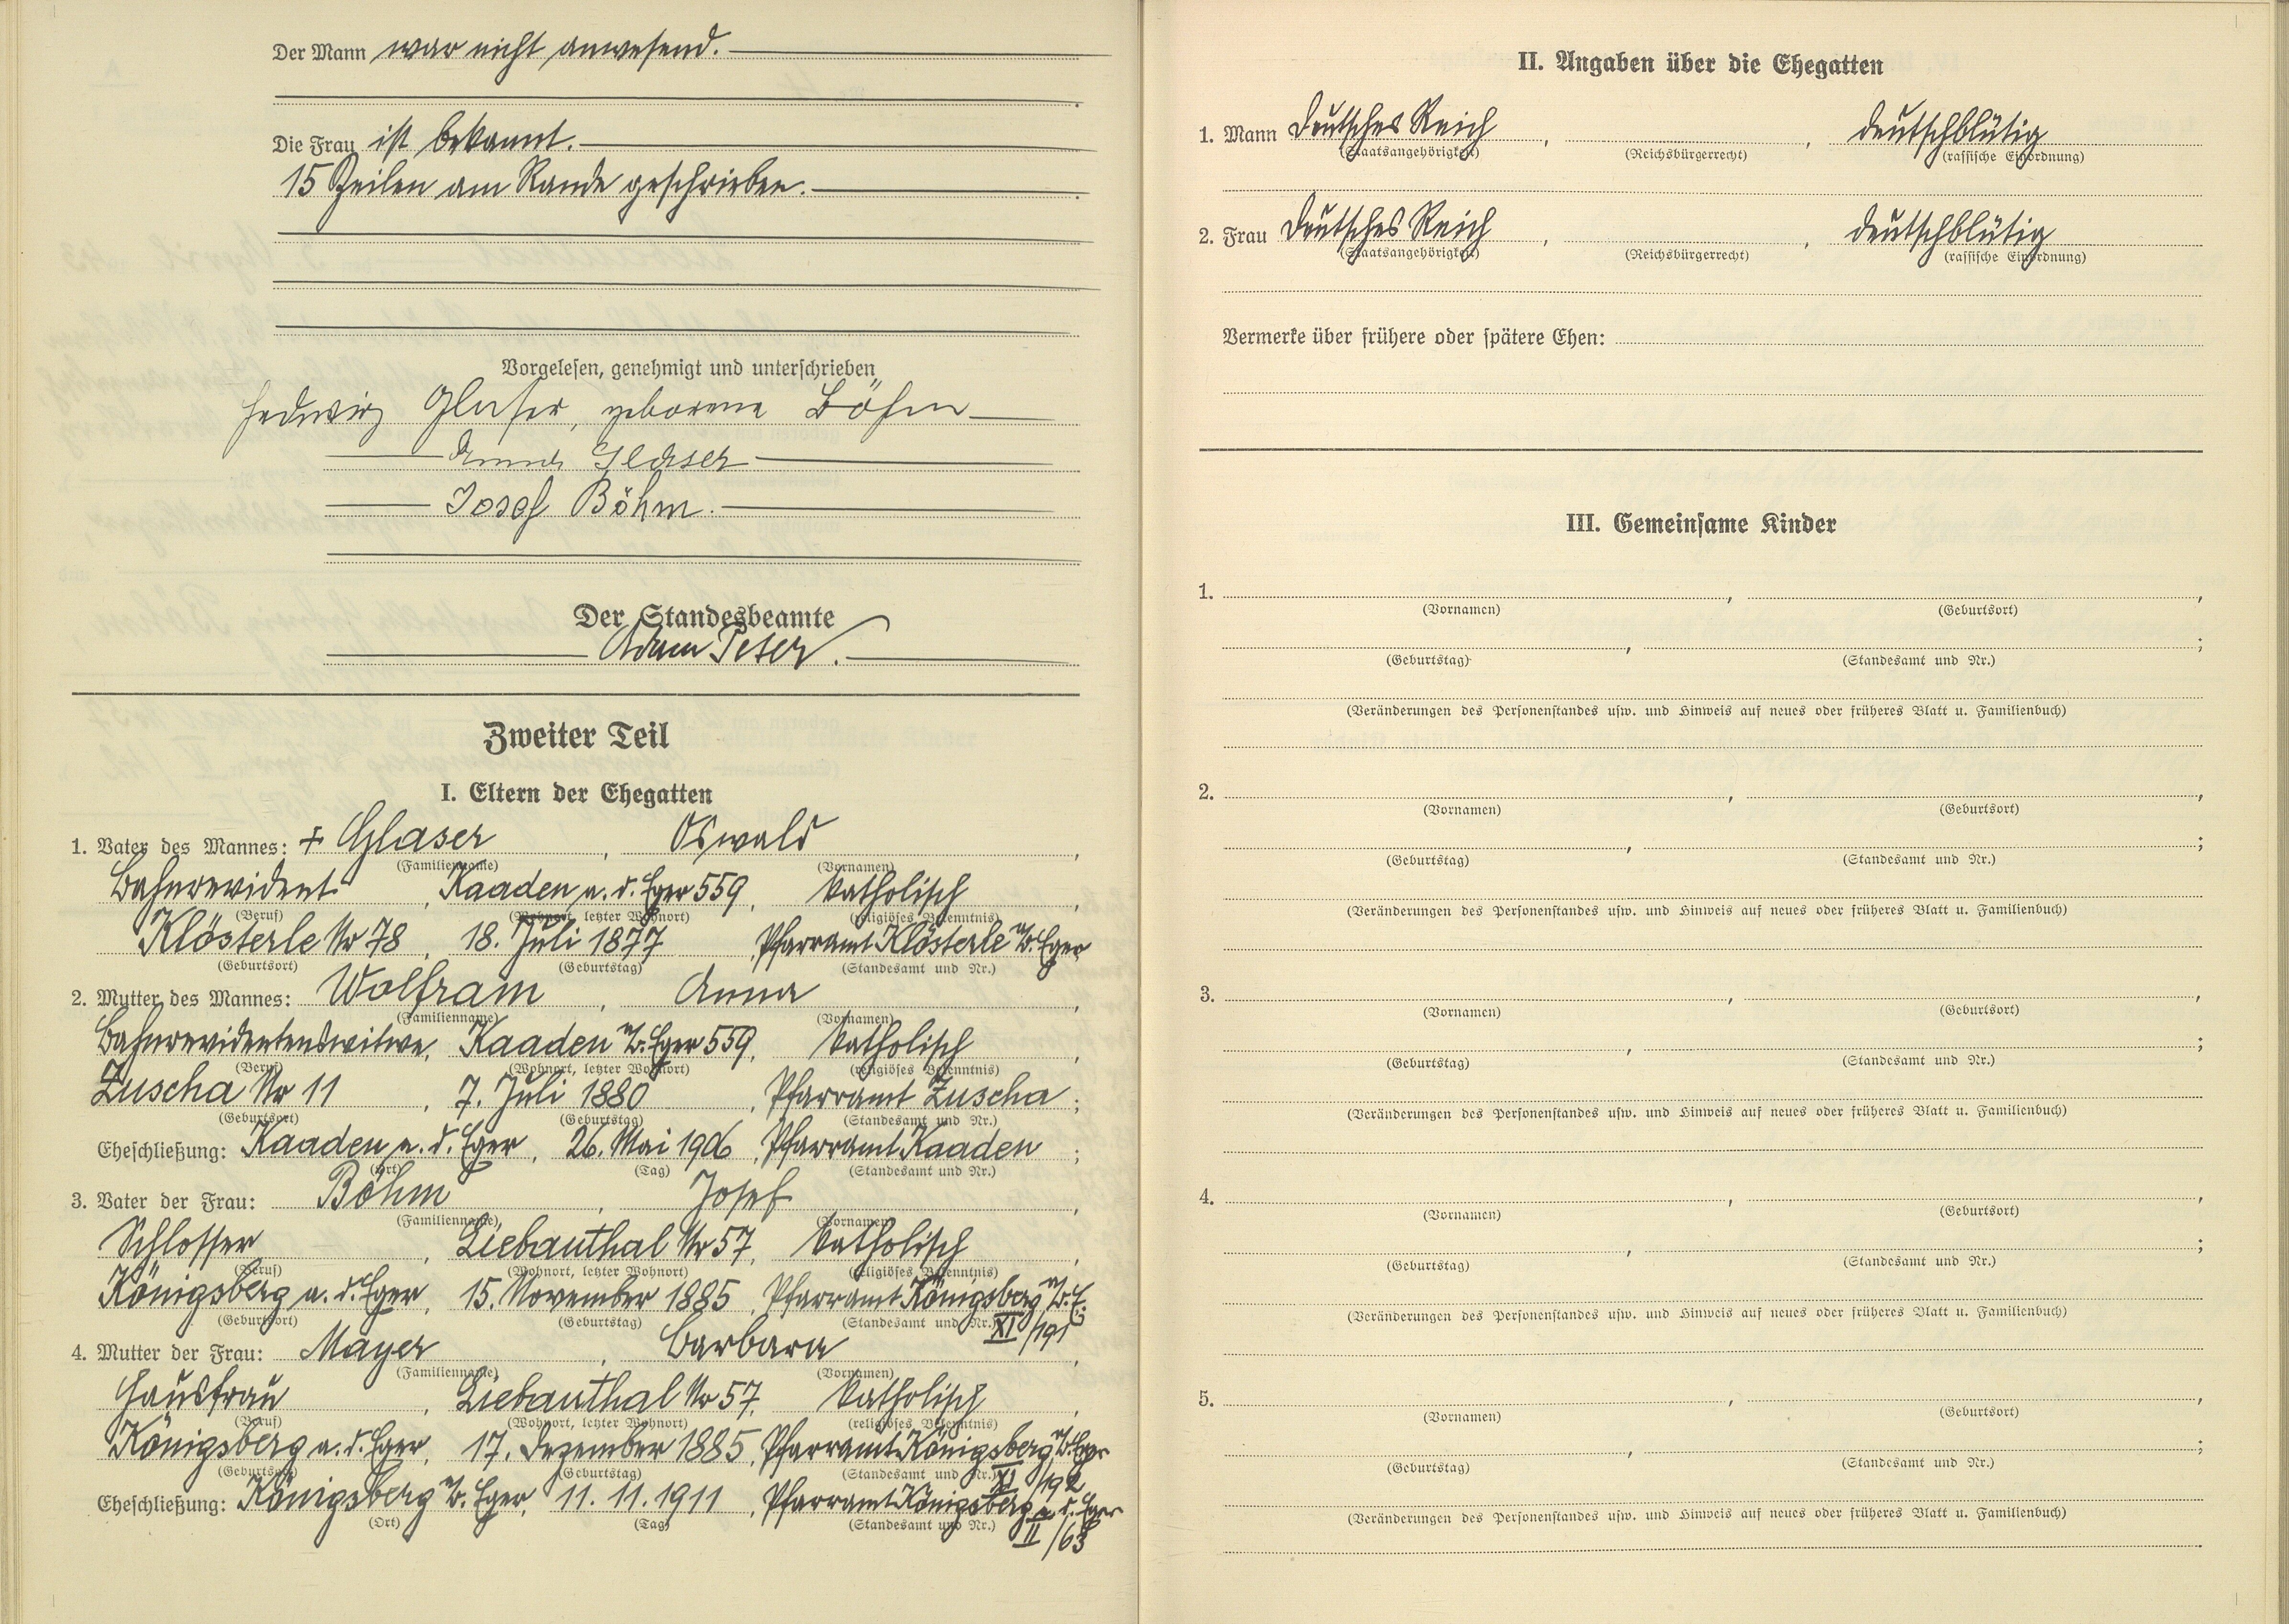 Der Mann war nicht anwesend.
Die Frau ist bekannt.
15 Zeilen am Rande geschrieben.
Vorgelesen, genehmigt und unterschrieben
Hedwig Glaser, geborene Böhm
Anna Glaser
Josef Böhm.
Der Standesbeamte
Adam Peter.
Zweiter Teil
I. Eltern der Ehegatten
1. Vater des Mannes: + Glaser, Oswald,
(Familienname) (Vornamen)
Bahnrevident, Kaaden a. d. Eger 559, katholisch,
(Beruf) (Wohnort, letzter Wohnort) (religiöses Bekenntnis)
Klösterle Nr 78, 18. Juli 1877, Pfarramt Klösterle a/d. Eger
(Geburtsort) (Geburtstag) (Standesamt und Nr.)
2. Mutter des Mannes: Wolfram, Anna,
(Familienname) (Vornamen)
Bahnrevidentenswitwe, Kaaden a/d. Eger 559, katholisch,
(Beruf) (Wohnort, letzter Wohnort) (religiöses Bekenntnis)
Zuscha Nr 11, 7. Juli 1880, Pfarramt Zuscha;
(Geburtsort) (Geburtstag) (Standesamt und Nr.)
Eheschließung: Kaaden a. d. Eger, 26. Mai 1906, Pfarramt Kaaden;
(Ort) (Tag) (Standesamt und Nr.)
3. Vater der Frau: Böhm, Josef,
(Familienname) (Vornamen)
Schlosser, Liebauthal Nr 57, katholisch,
(Beruf) (Wohnort, letzter Wohnort) (religiöses Bekenntnis)
Königsberg a. d. Eger, 15. November 1885, Pfarramt Königsberg a/d. E.
(Geburtsort) (Geburtstag) (Standesamt und Nr.) XI/191
4. Mutter der Frau: Mayer, Barbara,
(Familienname) (Vornamen)
Hausfrau, Liebauthal Nr 57, katholisch,
(Beruf) (Wohnort, letzter Wohnort) (religiöses Bekenntnis)
Königsberg a. d. Eger, 17. Dezember 1885, Pfarramt Königsberg a/d. Eger
(Geburtsort) (Geburtstag) (Standesamt und Nr.) XI/192
Eheschließung: Königsberg a/d. Eger, 11. 11. 1911, Pfarramt Königsberg a. d. Eger
(Ort) (Tag) (Standesamt und Nr.) II/63
II. Angaben über die Ehegatten
1. Mann Deutsches Reich, , deutschblütig
(Staatsangehörigkeit) (Reichsbürgerrecht) (rassische Einordnung)
2. Frau Deutsches Reich, , deutschblütig
(Staatsangehörigkeit) (Reichsbürgerrecht) (rassische Einordnung)
Vermerke über frühere oder spätere Ehen:
III. Gemeinsame Kinder
1. , ,
(Vornamen) (Geburtsort)
, ;
(Geburtstag) (Standesamt und Nr.)
(Veränderungen des Personenstandes usw. und Hinweis auf neues oder früheres Blatt u. Familienbuch)
2. , ,
(Vornamen) (Geburtsort)
, ;
(Geburtstag) (Standesamt und Nr.)
(Veränderungen des Personenstandes usw. und Hinweis auf neues oder früheres Blatt u. Familienbuch)
3. , ,
(Vornamen) (Geburtsort)
, ;
(Geburtstag) (Standesamt und Nr.)
(Veränderungen des Personenstandes usw. und Hinweis auf neues oder früheres Blatt u. Familienbuch)
4. , ,
(Vornamen) (Geburtsort)
, ;
(Geburtstag) (Standesamt und Nr.)
(Veränderungen des Personenstandes usw. und Hinweis auf neues oder früheres Blatt u. Familienbuch)
5. , ,
(Vornamen) (Geburtsort)
, ;
(Geburtstag) (Standesamt und Nr.)
(Veränderungen des Personenstandes usw. und Hinweis auf neues oder früheres Blatt u. Familienbuch)